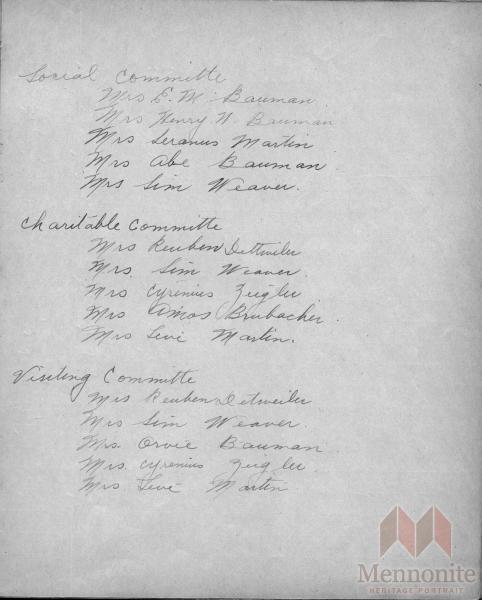 Social Committe
Mrs E. M. Bauman
Mrs Henry W. Bauman
Mrs Seranus Martin
Mrs Abe Bauman
Mrs Sim Weaver.
Charitable Committe
Mrs Reuben Dettwiler
Mrs. Sim Weaver
Mrs Cyrenius Zeigler
Mrs Amos Brubacher.
Mrs Levi Martin.
Visiting Committe
Mrs Reuben Detweiler
Mrs Sim Weaver.
Mrs. Orvie Bauman
Mrs. Cyrenius Zeigler.
Mrs Levi Martin
Mennonite
HERITAGE PORTRAIT